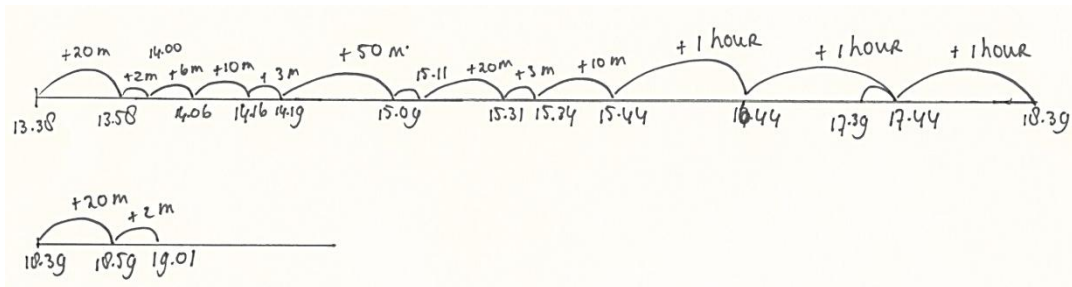 +20m 14.00 +2m +6m +10m + 3m +50 m 15.11 +20m +3m +10m + 1 hour + 1 hour + 1 hour
13.38 13.58 14.06 14.16 14.19 15.09 15.31 15.34 15.44 16.44 17.39 17.44 18.39
+20m +2m
18.39 18.59 19.01